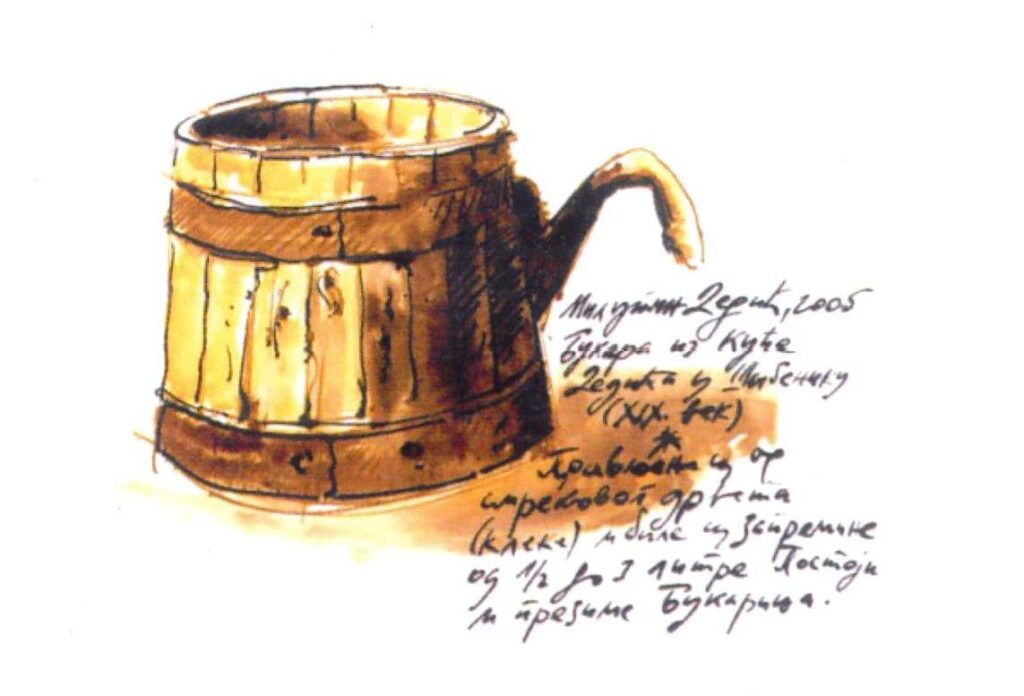 Милутин Дедић, 2005
Букара из куће
Дедића у Шибенику
(XIX. век)
*
Прављене су од
смрековог дрвета
(клека) и биле су запремине
од 1/2 до 3 литре Постоји
и презиме Букарица.